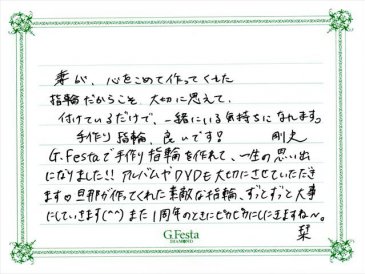 栞が、心をこめて作ってくれた
指輪だからこそ、大切に思えて、
付けているだけで、一緒にいる気持ちになれます。
手作り指輪、良いです! 剛史
G.Festaで手作り指輪を作れて、一生の思い出
になりました!! アルバムやDVDも大切にさせていただき
ます♡旦那が作ってくれた素敵な指輪、ずっとずっと大事
にしていきます(^^)また1周年のときにピカピカにしにきますね〜。
栞
G.Festa
DIAMOND